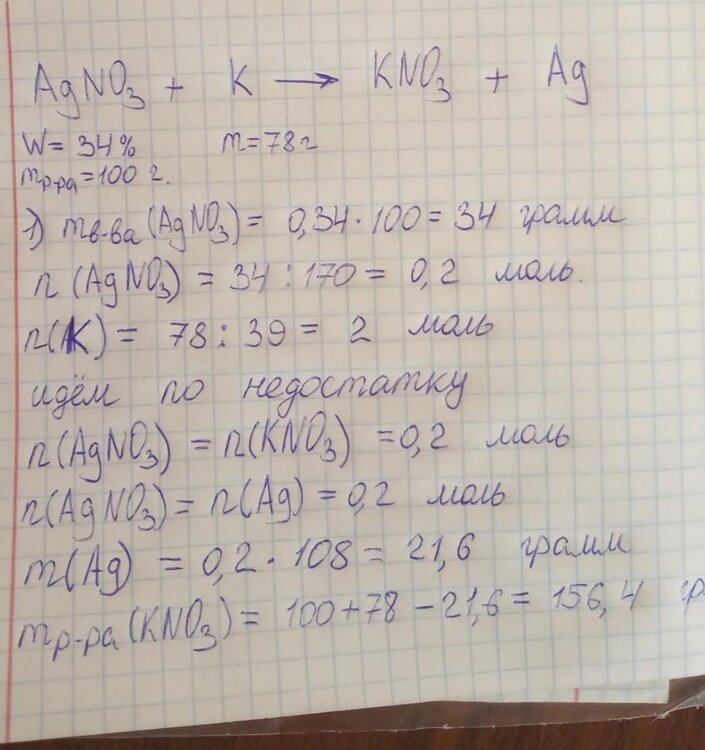 AgNO₃ + K → KNO₃ + Ag
W = 34% m = 78 г
mр-ра = 100 г.
1) mв-ва (AgNO₃) = 0,34 · 100 = 34 грамм
n (AgNO₃) = 34 : 170 = 0,2 моль.
n(K) = 78 : 39 = 2 моль
идём по недостатку
n(AgNO₃) = n(KNO₃) = 0,2 моль
n(AgNO₃) = n(Ag) = 0,2 моль
m(Ag) = 0,2 · 108 = 21,6 грамм
mр-ра (KNO₃) = 100 + 78 - 21,6 = 156,4 гр